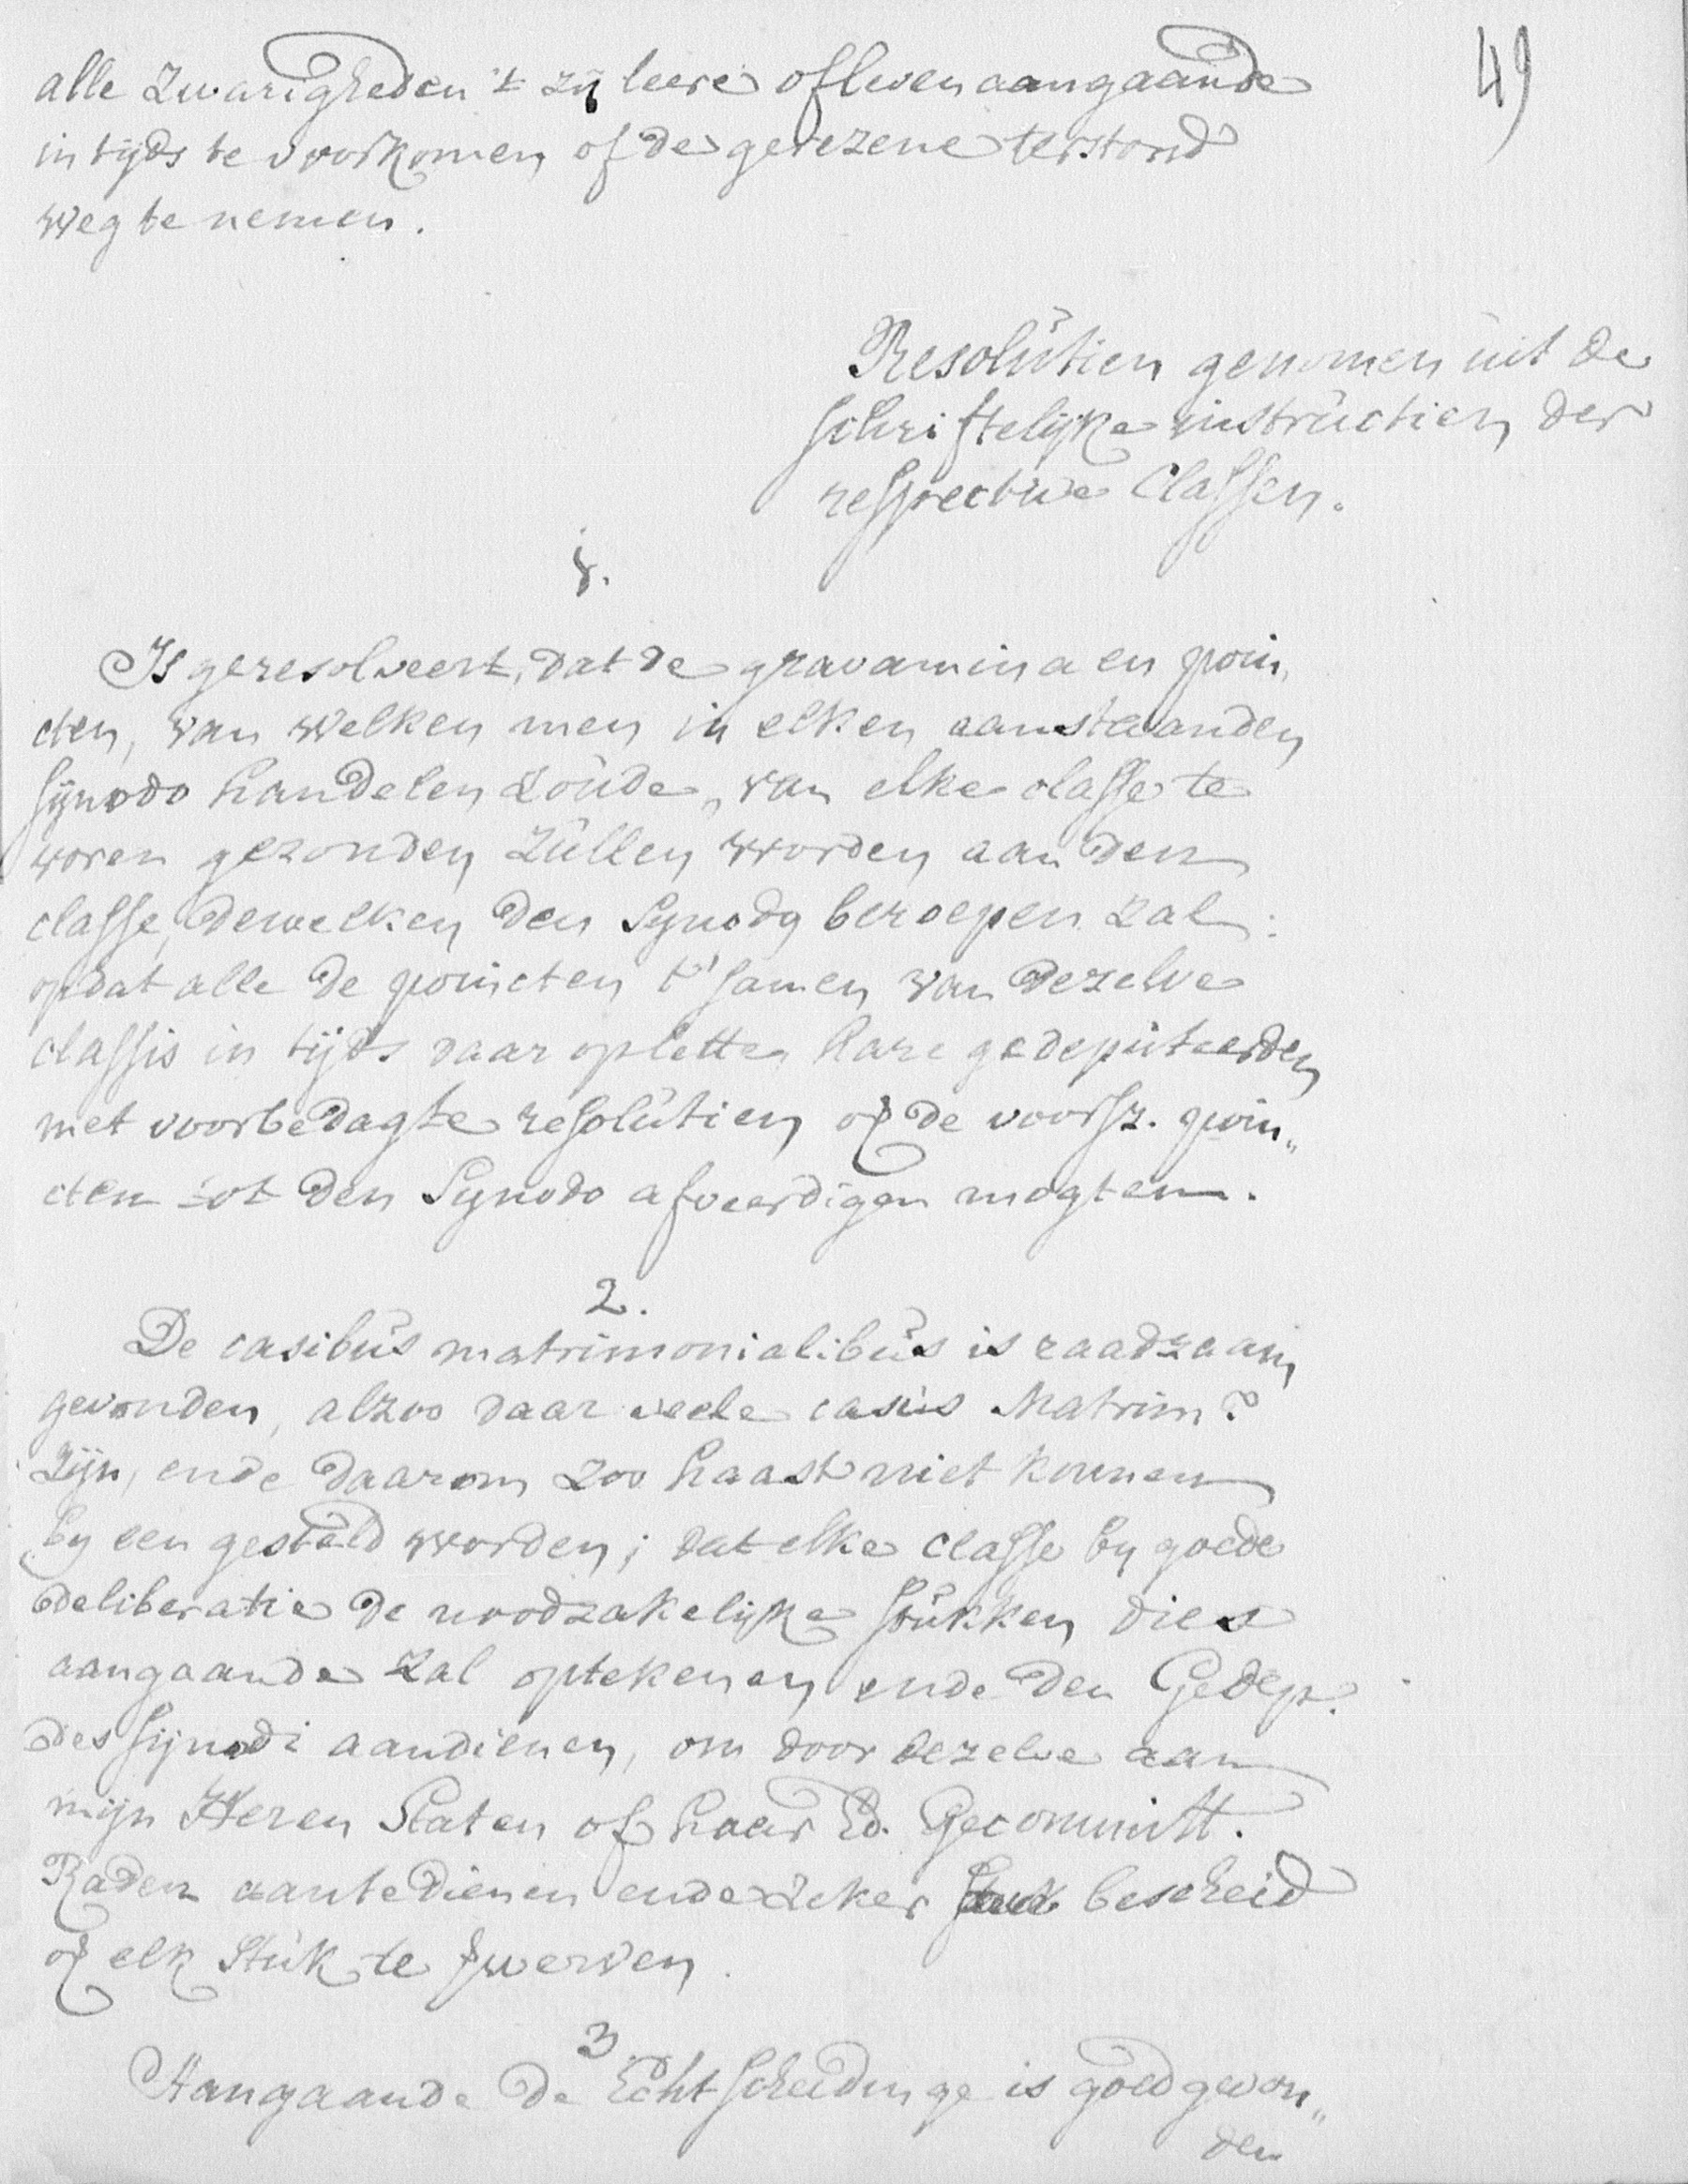 49
alle zwarigheden 't zy leere of leven aangaande
in tyds te voorkomen of de gerezene terstond
weg te nemen.
Resolutien genomen uit de
schriftelijke instructien der
respective Classen.
1.
Is geresolveert, dat de gravamina en poin„
cten, van welken men in elken aanstaanden
synodo handelen zoude, van elke classe te
voren gezonden zullen worden aan den
classe, dewelken den Synodo beroepen zal:
opdat alle de poincten t'samen van dezelve
classis in tijds daar op lette, hare gedeputeerden
met voorbedagte resolutien op de voorsz. poin„
cten tot den Synodo afveerdigen mogten.
2.
De casibus matrimonialibus is raadzaam
gevonden, alzoo daar veele casus Matrim:
zijn, ende daarom zoo haast niet konnen
by een gesteld worden; dat elke classe by goede
deliberatie de noodzakelijke stukken dies
aangaande zal optekenen ende den Gedep:
des synodi aandienen, om door dezelve aan
mijn Heren Staten of haar Ed. Gecommitt.
Raden aan te dienen ende zeker bescheid
op elk stuk te verwerven.
3
Aangaande de Echtscheidinge is goed gevon„
den